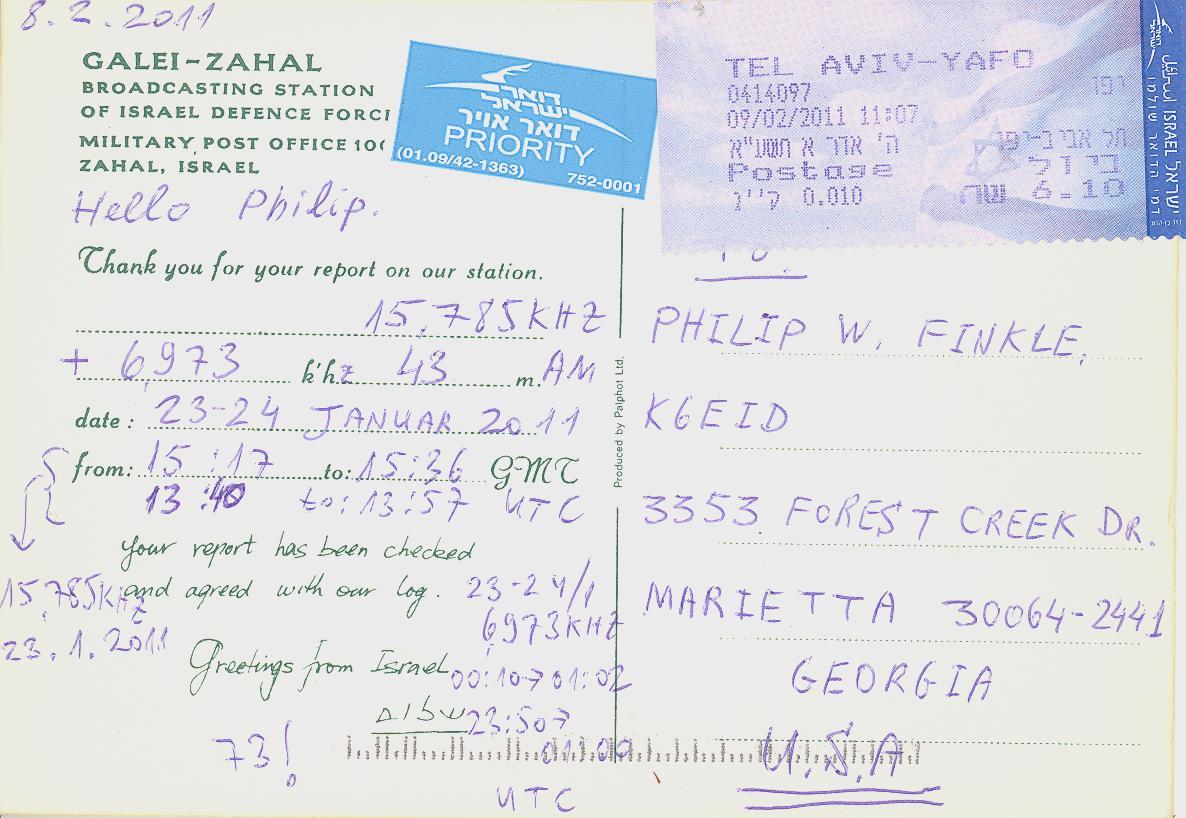 8.2.2011
GALEI-ZAHAL
BROADCASTING STATION
OF ISRAEL DEFENCE FORC
MILITARY POST OFFICE 10
ZAHAL, ISRAEL
דואר
ישראל
דואר אויר
PRIORITY
(01.09/42-1363) 752-0001
TEL AVIV-YAFO
0414097 יפו
09/02/2011 11:07
ה' אדר א תשע"א תל אביב-יפו
Postage בי ול
ק"ג 0.010 שח 6.10
דואר
ישראל
ISRAEL ישראל
דמי הדואר שולמו
Hello Philip.
Thank you for your report on our station.
15,785KHZ
+ 6,973 k'hz 43 m. AM
date: 23-24 JANUAR 2011
from: 15:17 to: 15:36 GMT
13:40 to: 13:57 UTC
your report has been checked
and agreed with our log.
15,785KHZ
23.1.2011
23-24/1
6,973KHZ
Greetings from Israel
שלום
00:10→01:02
23:50→
01:09
UTC
73!
Produced by Palphot Ltd.
TO:
PHILIP W. FINKLE,
K6EID
3353 FOREST CREEK DR.
MARIETTA 30064-2441
GEORGIA
U.S.A